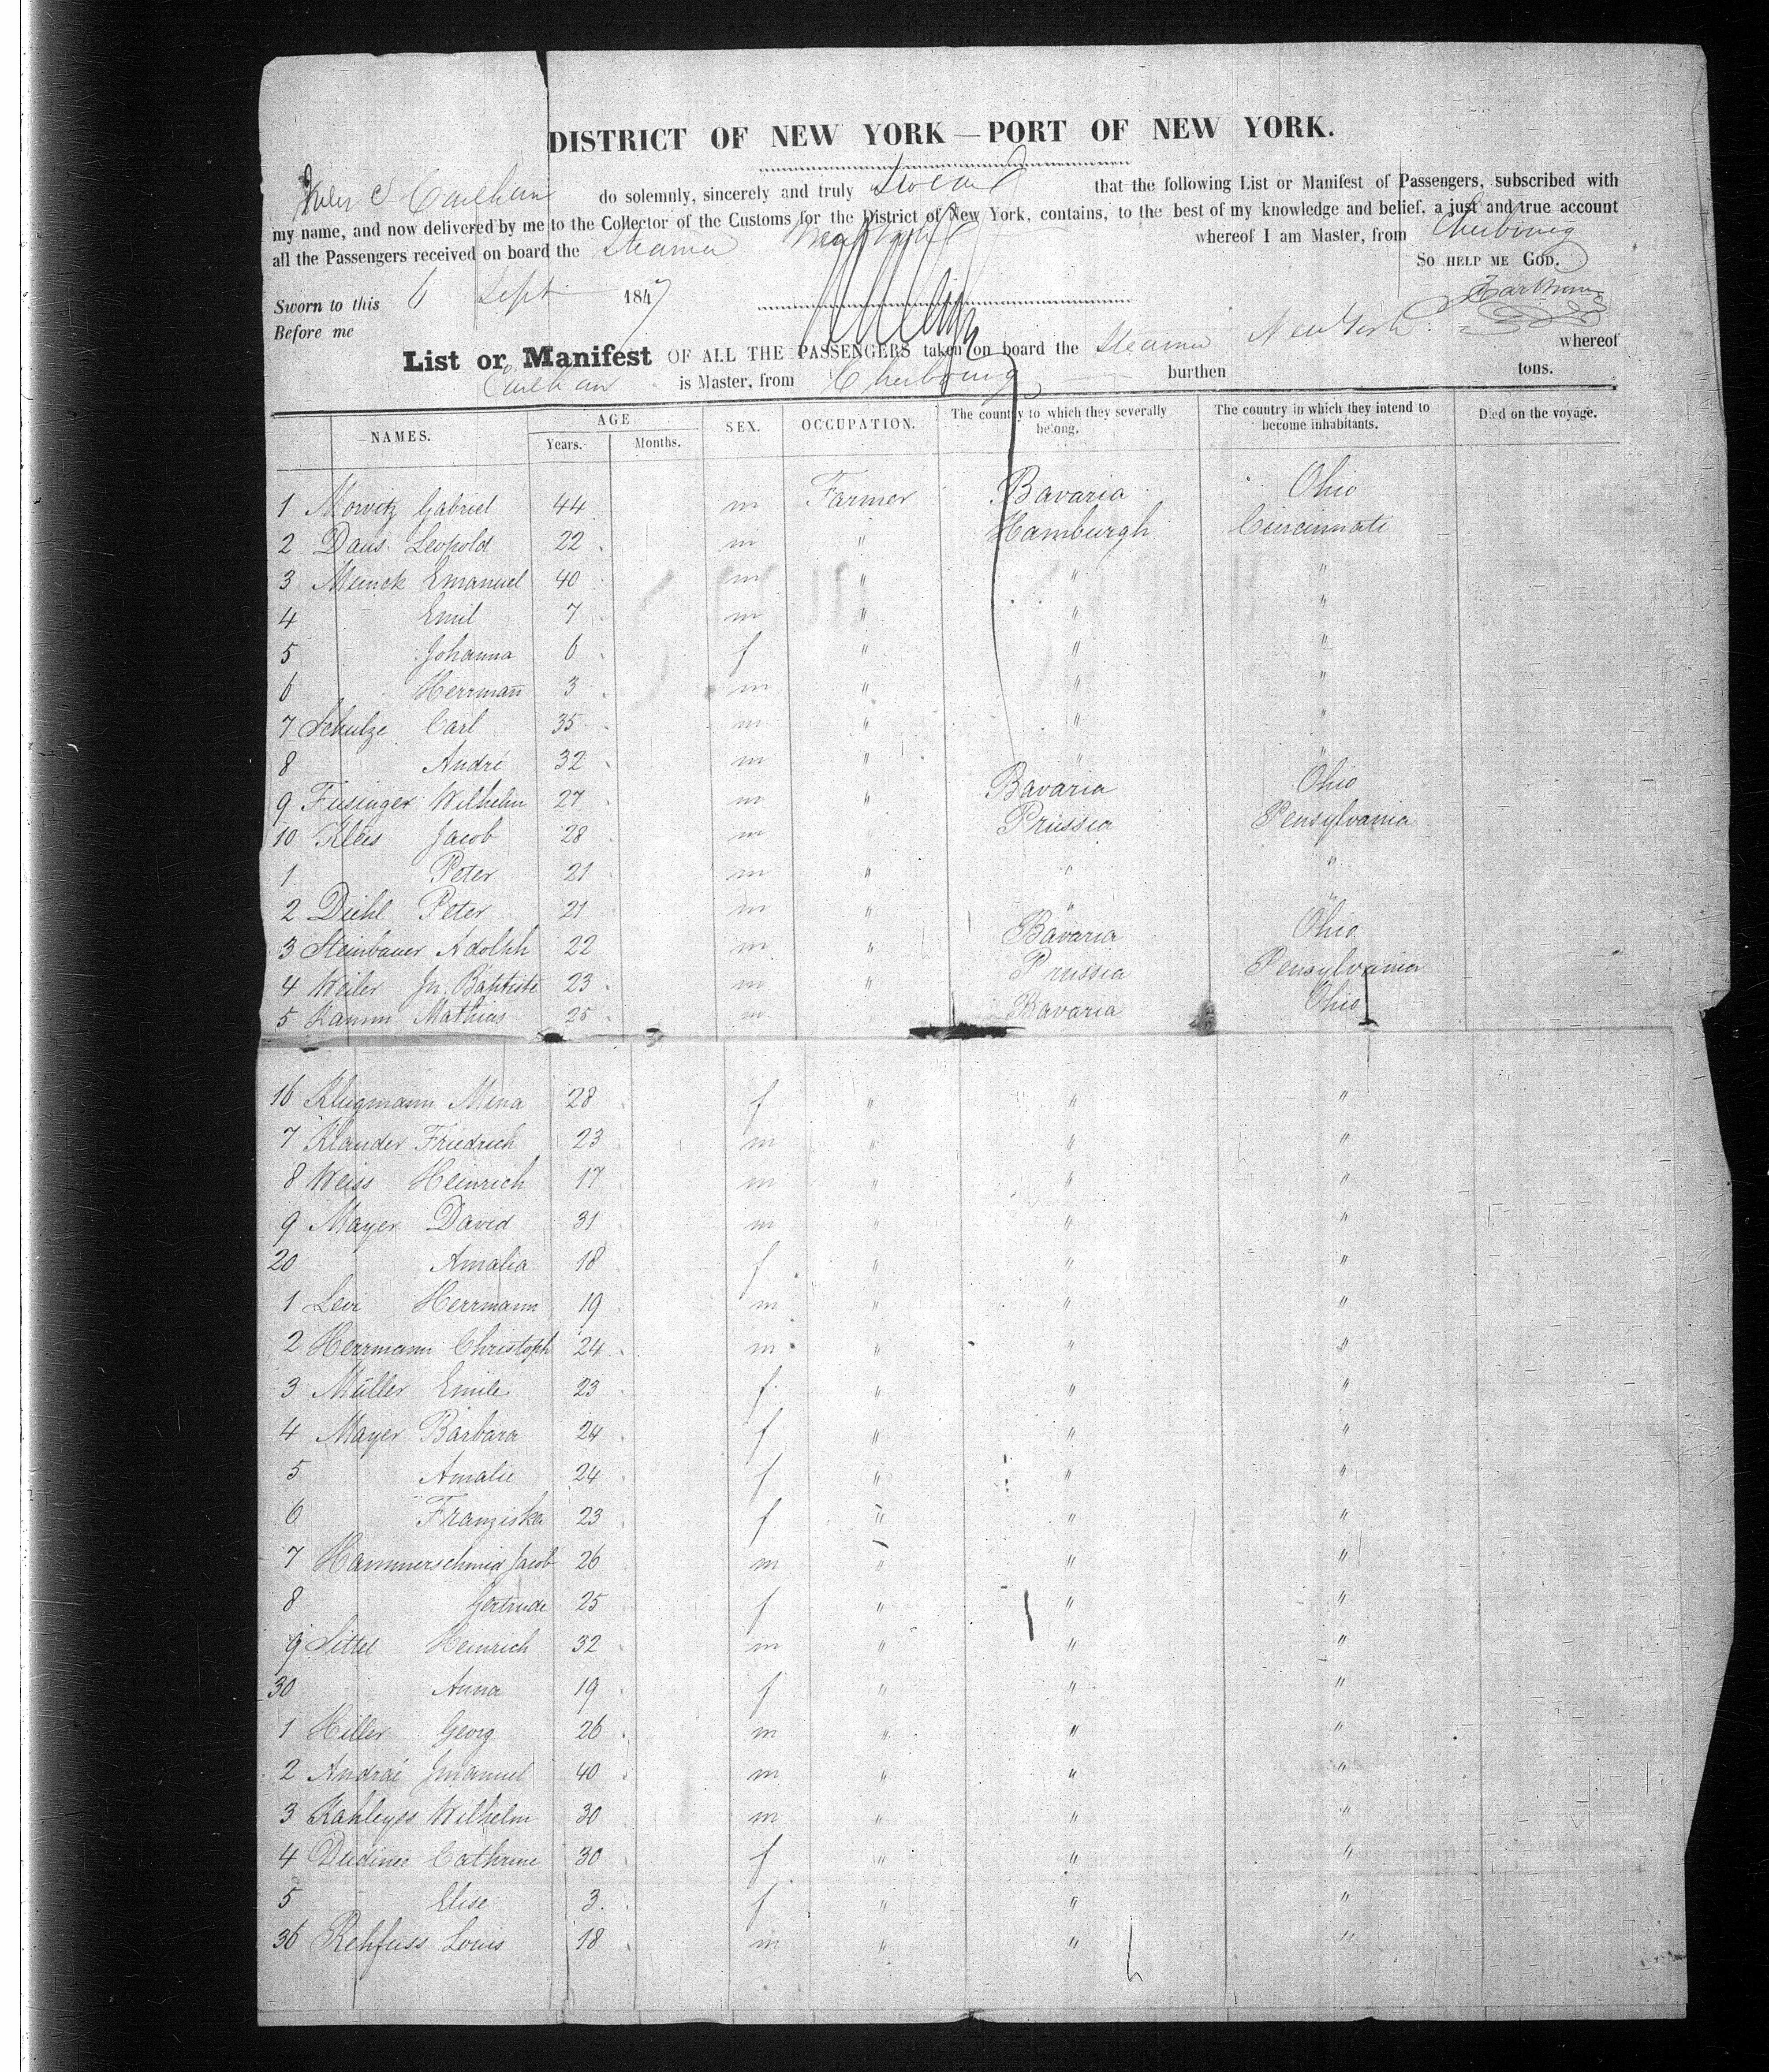 DISTRICT OF NEW YORK — PORT OF NEW YORK.
do solemnly, sincerely and truly Swear that the following List or Manifest of Passengers, subscribed with
my name, and now delivered by me to the Collector of the Customs for the District of New York, contains, to the best of my knowledge and belief, a just and true account
all the Passengers received on board the Steamer whereof I am Master, from Cherbourg
SO HELP ME GOD.
Sworn to this 6 Sept 1847
Before me
List or Manifest OF ALL THE PASSENGERS taken on board the Steamer New York whereof
is Master, from Cherbourg burthen tons.
NAMES. AGE Years. Months. SEX. OCCUPATION. The country to which they severally belong. The country in which they intend to become inhabitants. Died on the voyage.
1 Morvitz Gabriel 44 m Farmer Bavaria Ohio
2 Daus Leopold 22 m " Hamburgh Cincinnati
3 Munck Emanuel 40 m " " "
4 Emil 7 m " " "
5 Johanna 6 f " " "
6 Herrmañ 3 m " " "
7 Schulze Carl 35 m " " "
8 André 32 m " " "
9 Fusinger Wilhelm 27 m " Bavaria Ohio
10 Klees Jacob 28 m Prussia Pensylvania
1 Peter 21 m " " "
2 Diehl Peter 21 m " " "
3 Steinbauer Adolph 22 m " Bavaria Ohio
4 Weiler Jn. Baptiste 23 m " Prussia Pensylvania
5 Ramm Mathias 25 m Bavaria Ohio
16 Klugmann Mina 28 f " " "
7 Klander Friedrich 23 m " " "
8 Weiss Heinrich 17 m " " "
9 Mayer David 31 m " " "
20 Amalia 18 f " " "
1 Levi Herrmann 19 m " " "
2 Herrmann Christoph 24 m " " "
3 Müller Emile 23 f " " "
4 Mayer Barbara 24 f " " "
5 Amalie 24 f " " "
6 Franziska 23 f " " "
7 Hammerschmid Jacob 26 m " " "
8 Gertrude 25 f " " "
9 Sittel Heinrich 32 m " " "
30 Anna 19 f " " "
1 Hiller Georg 26 m " " "
2 Andraé Jmanuel 40 m " " "
3 Kahleyss Wilhelm 30 m " " "
4 Cathrine 30 f " " "
5 Elise 3 f " " "
36 Rehfuss Louis 18 m " " "